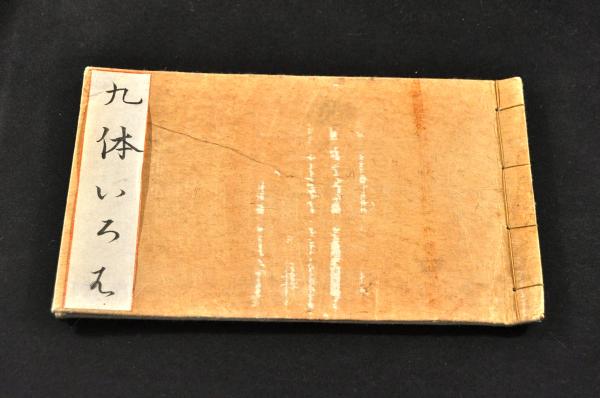 九体いろは